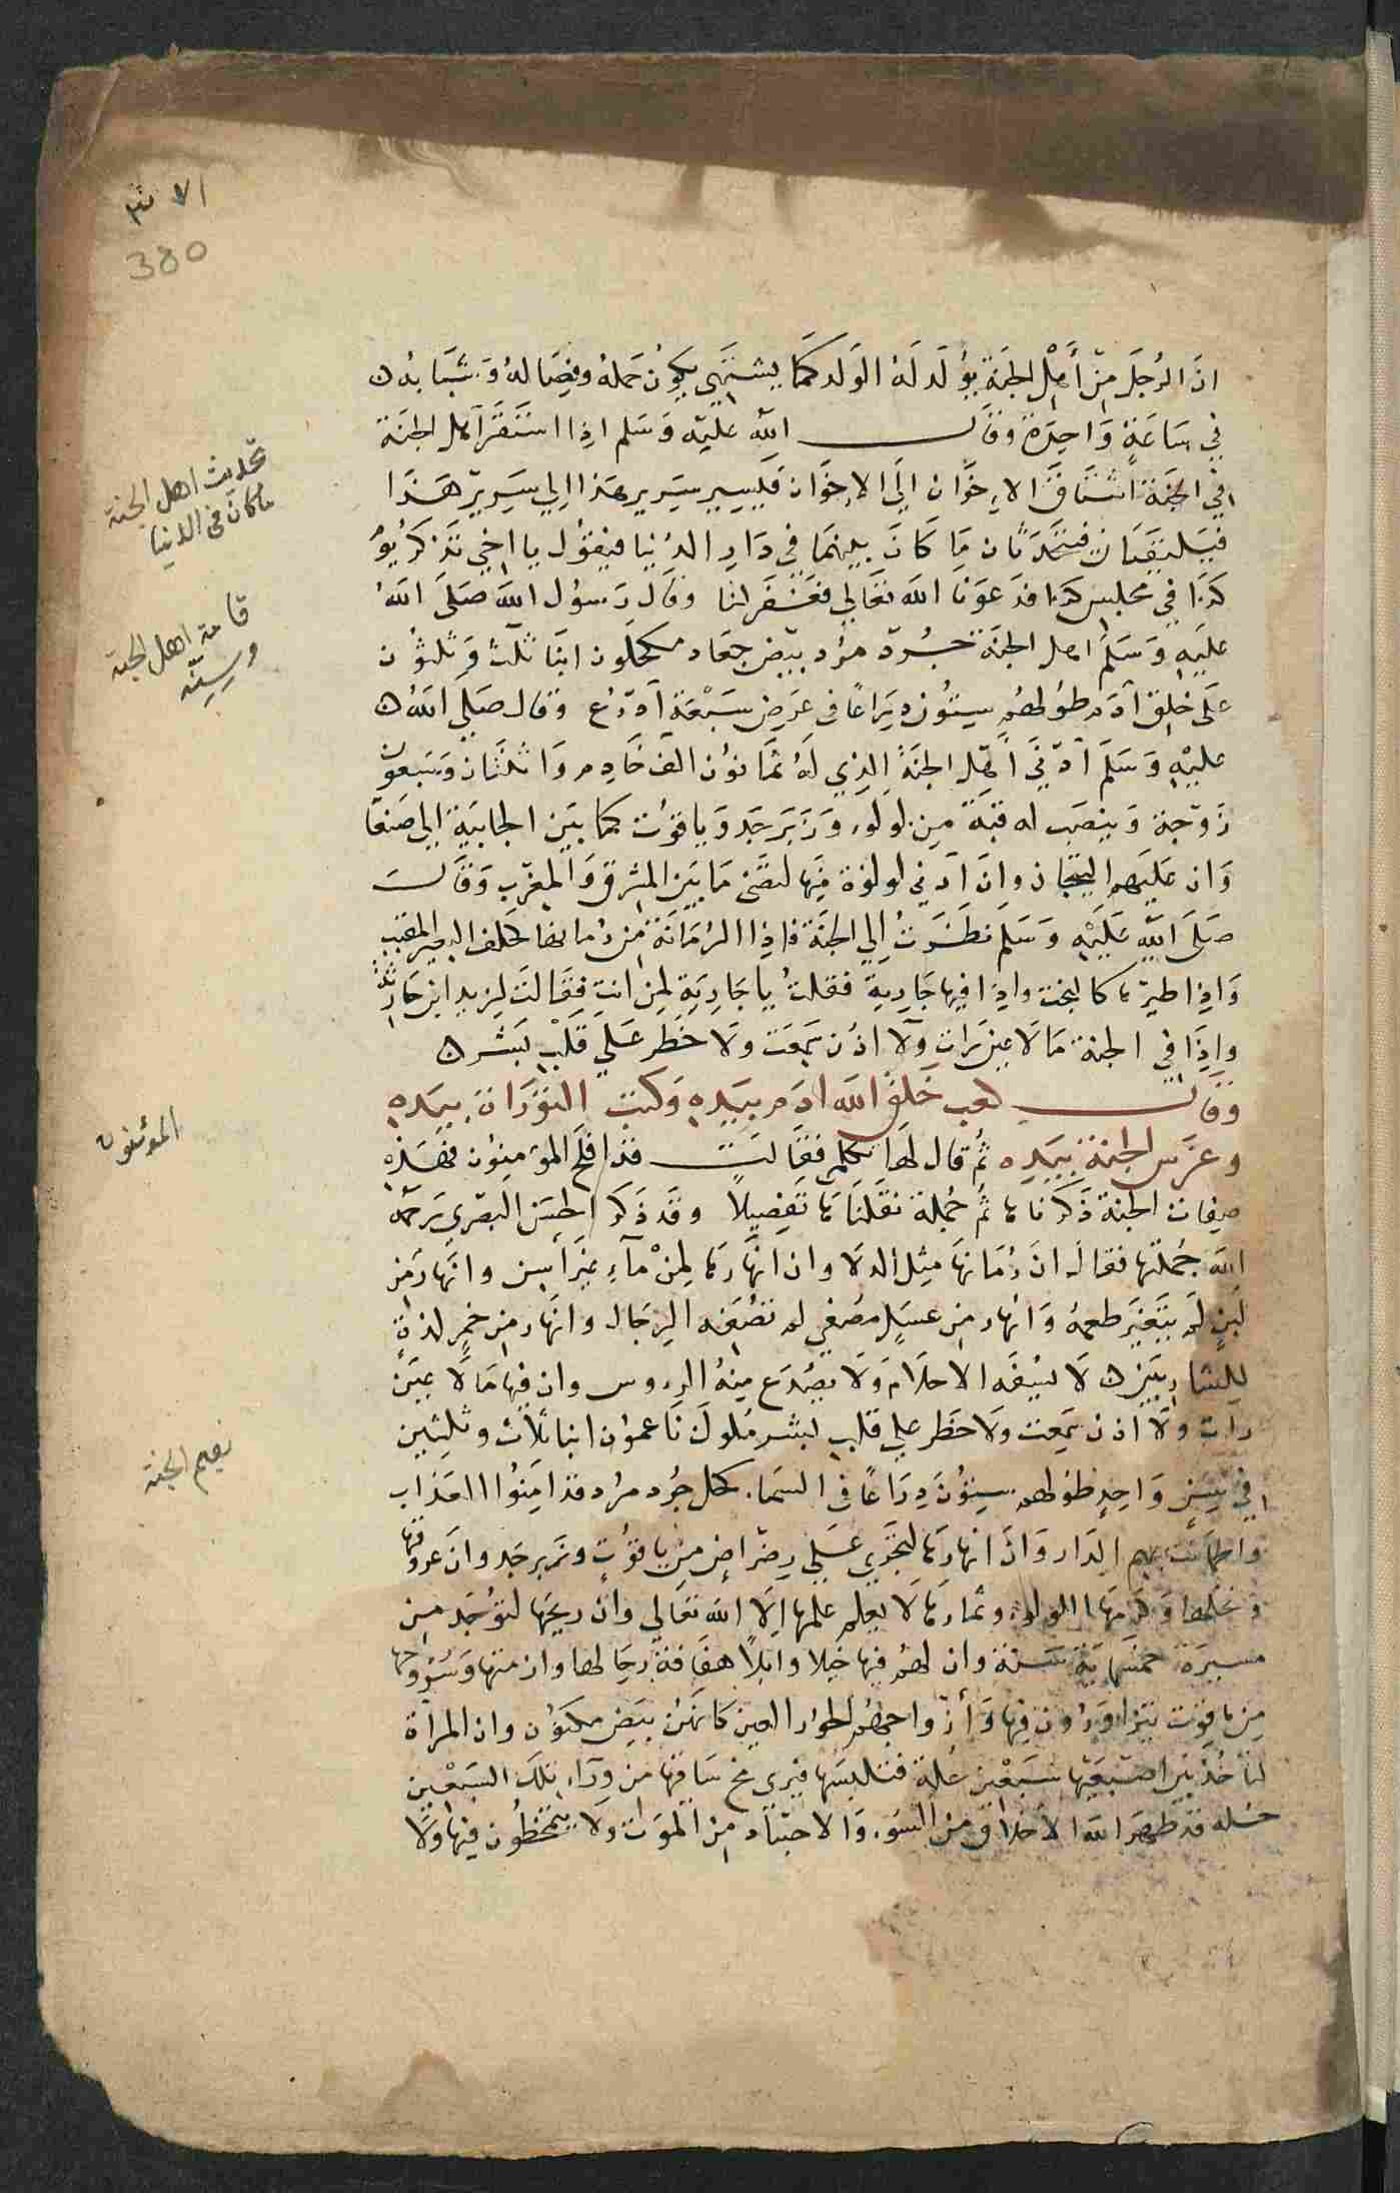 380
ان الرجل من أهل الجنة يولد له الولد كما يشتهي يكون حمله وفصاله وشبابه
في ساعة واحدة وقال الله عليه وسلم اذا استقر اهل الجنة
في الجنة اشتاق الاخوان الي الاخوان فيسير سرير هذا الي سرير هذا
فيلتقيان فيتحدثان ما كان بينهما في دار الدنيا فيقول يا اخي تذكر يوم
كذا في مجلس كذا فدعونا الله تعالي فغفر لنا وقال رسول الله صلى الله
عليه وسلم اهل الجنة جرد مرد بيض جعاد مكحلون ابنا ثلث وثلثون
على خلق آدم طولهم ستون ذراعا في عرض سبعة أذرع وقال صلى الله
عليه وسلم أدني أهل الجنة الذي له ثمانون الف خادم واثنتان وسبعون
زوجة وينصب له قبة من لولو وزبرجد وياقوت كما بين الجابية الي صنعا
وان عليهم التيجان وان أدني لولوة منها لتضئ ما بين المشرق والمغرب وقال
صلى الله عليه وسلم نظرت إلي الجنة فاذا الرمانة من رمانها كخلف البعير المقتب
واذا طيرها كالبخت واذا فيها جارية فقلت يا جارية لمن انت فقالت لزيد ابن حارثة
واذا في الجنة ما لا عين رات ولا اذن سمعت ولا خطر علي قلب بشر
وقال كعب خلق الله ادم بيده وكتب التوراة بيده
وغرس الجنة بيده ثم قال لها تكلم فقالت قد افلح المؤمنون فهذه
صفات الجنة ذكرناها ثم جملة نقلناها تفصيلا وقد ذكر الحسن البصري رحمه
الله جملتها فقال ان رمانها مثل الدلا وان انهارها لمن مآء غير آسن وانهار من
لبن لم يتغير طعمه وانهار من عسل مصفي لم تصفه الرجال وانهار من خمر لذة
للشاربين لا تسفه الاحلام ولا يصدع منه الروس وان فيها ما لا عين
رات ولا اذن سمعت ولا خطر علي قلب بشر ملوك ناعمون ابنا ثلاث وثلثين
في سن واحد طولهم ستون ذراعا في السما كحل جرد مرد قد امنوا العذاب
واطمانت بهم الدار وان انهارها لتجري علي رضراض من ياقوت وزبرجد وان عروقها
ونخلها وكرمها اللولو وثمارها لا يعلم علمها الا الله تعالي وان ريحها لتوجد من
مسيرة خمسماية سنة وان لهم فيها خيلا وابلا هفافة رحالها وازمتها وسروجها
من ياقوت يتزاورون فيها وأزواجهم الحور العين كانهن بيض مكنون وان المرأة
لتاخذ بين اصبعيها سبعين حلة فتلبسها فيرى مخ ساقها من ورآء تلك السبعين
حله قد طهر الله الاخلاق من السوء والاجساد من الموت ولا يتمخطون فيها ولا
تحديث اهل الجنة
ما كان في الدنيا
قامة اهل الجنة
وسنه
المؤمنون
نعيم الجنة